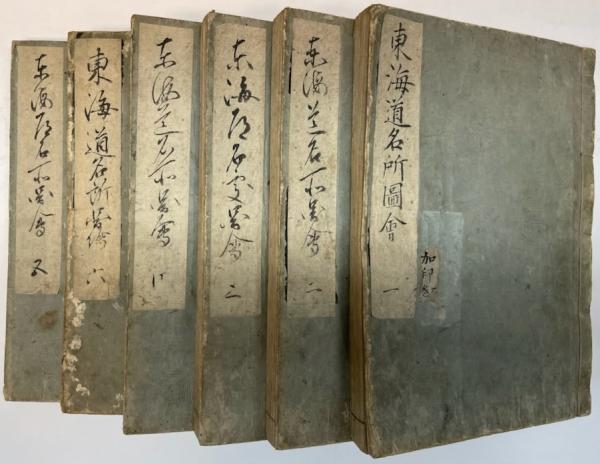 東海道名所圖會 一
東海道名所圖會 二
東海道名所圖會 三
東海道名所圖會
東海道名所 六
東海道名所圖會 五